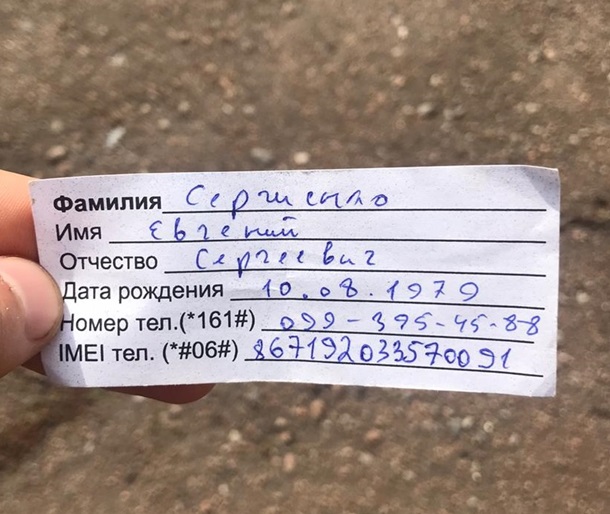 Фамилия Сергиенко
Имя Евгений
Отчество Сергеевич
Дата рождения 10.08.1979
Номер тел.(*161#) 099-395-45-88
IMEI тел. (*#06#) 867192033570091